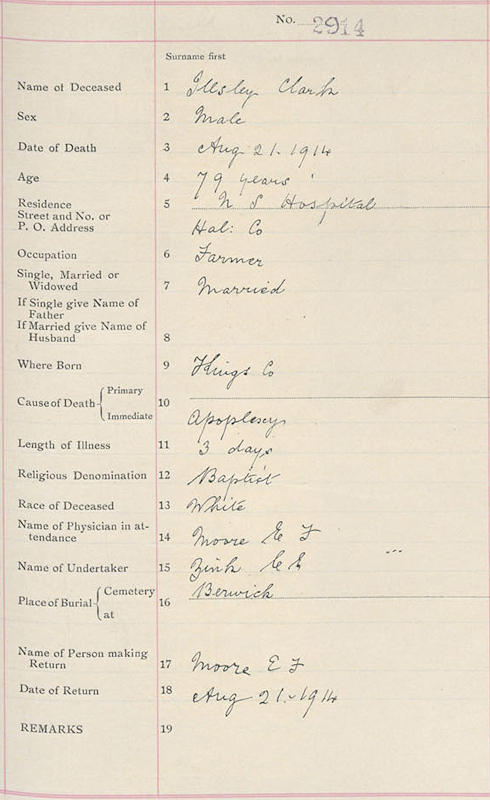 No. 2914
Surname first
Name of Deceased 1 Illsley Clark
Sex 2 Male
Date of Death 3 Aug 21. 1914
Age 4 79 years
Residence 5 N S Hospital
Street and No. or
P. O. Address Hal: Co
Occupation 6 Farmer
Single, Married or
Widowed 7 Married
If Single give Name of
Father
If Married give Name of
Husband 8
Where Born 9 Kings Co
Cause of Death Primary
10
Immediate Apoplexy
Length of Illness 11 3 days
Religious Denomination 12 Baptist
Race of Deceased 13 White
Name of Physician in at-
tendance 14 Moore E F
Name of Undertaker 15 Zink
Place of Burial Cemetery Berwick
16
at
Name of Person making
Return 17 Moore E F
Date of Return 18 Aug 21.-1914
REMARKS 19